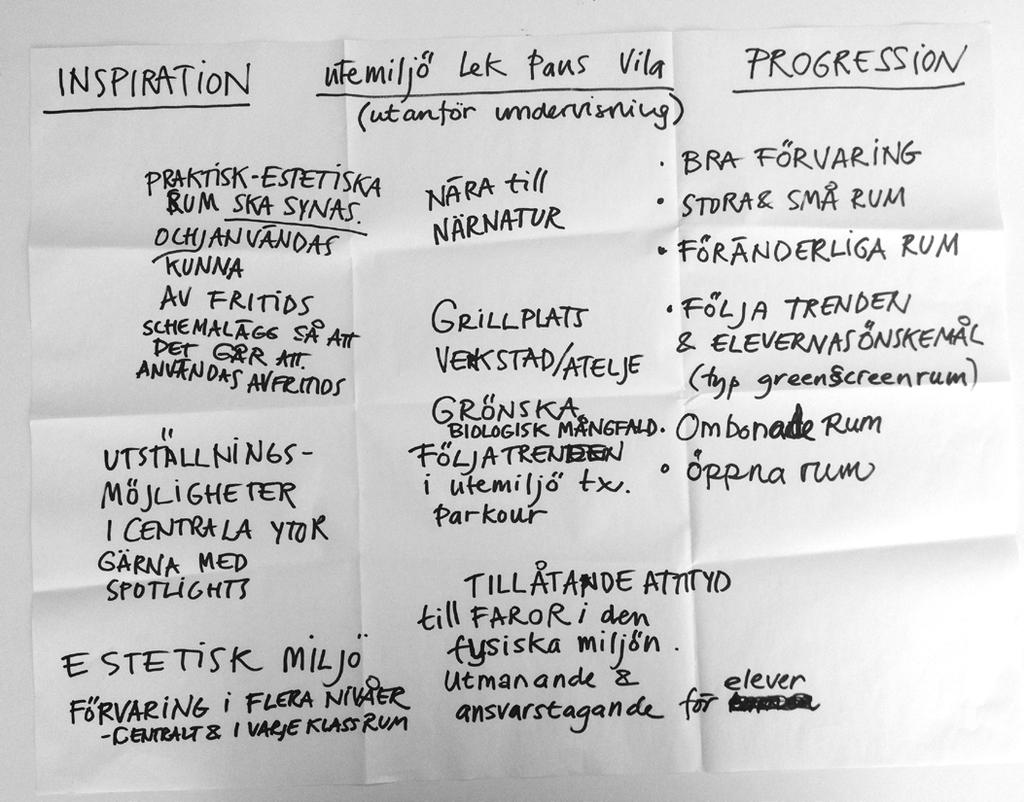 INSPIRATION
PRAKTISK-ESTETISKA
RUM SKA SYNAS.
OCH ANVÄNDAS
KUNNA
AV FRITIDS
SCHEMALÄGG SÅ ATT
DET GÅR ATT.
ANVÄNDAS AV FRITIDS
UTSTÄLLNINGS-
MÖJLIGHETER
I CENTRALA YTOR
GÄRNA MED
SPOTLIGHTS
ESTETISK MILJÖ
FÖRVARING i FLERA NIVÅER
-CENTRALT & I VARJE KLASSRUM
utemiljö Lek Paus Vila
(utanför undervisning)
NÄRA till
NÄRNATUR
GRILLPLATS
VERKSTAD/ATELJE
GRÖNSKA
BIOLOGISK MÅNGFALD.
FÖLJA TRENDEN
i utemiljö tx.
parkour
TILLÅTANDE ATTITYD
till FAROR i den
fysiska miljön.
utmanande &
ansvarstagande för elever
PROGRESSION
• BRA FÖRVARING
• STORA & SMÅ RUM
• FÖRÄNDERLIGA RUM
• FÖLJA TRENDEN
& ELEVERNAS ÖNSKEMÅL
(typ greenscreenrum)
• Ombonade Rum
• öppna rum